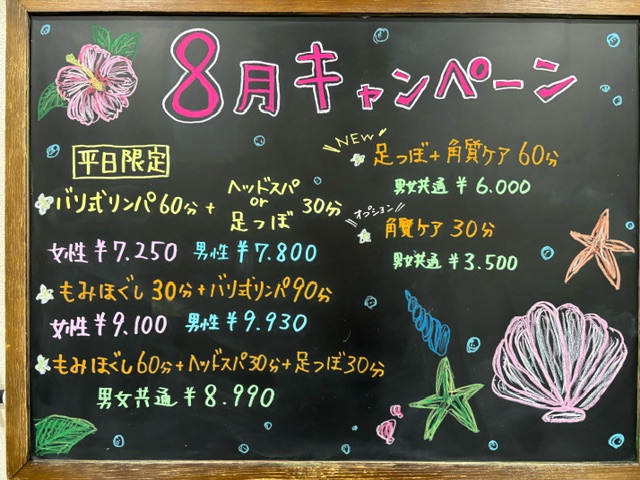 8月キャンペーン
平日限定
バリ式リンパ60分 + ヘッドスパ or 足つぼ 30分
女性 ¥7.250 男性 ¥7.800
もみほぐし30分+バリ式リンパ90分
女性 ¥9.100 男性 ¥9.930
もみほぐし60分+ヘッドスパ30分+足つぼ30分
男女共通 ¥8.990
NEW
足つぼ+角質ケア60分
男女共通 ¥6.000
オプション!!
角質ケア30分
男女共通 ¥3.500